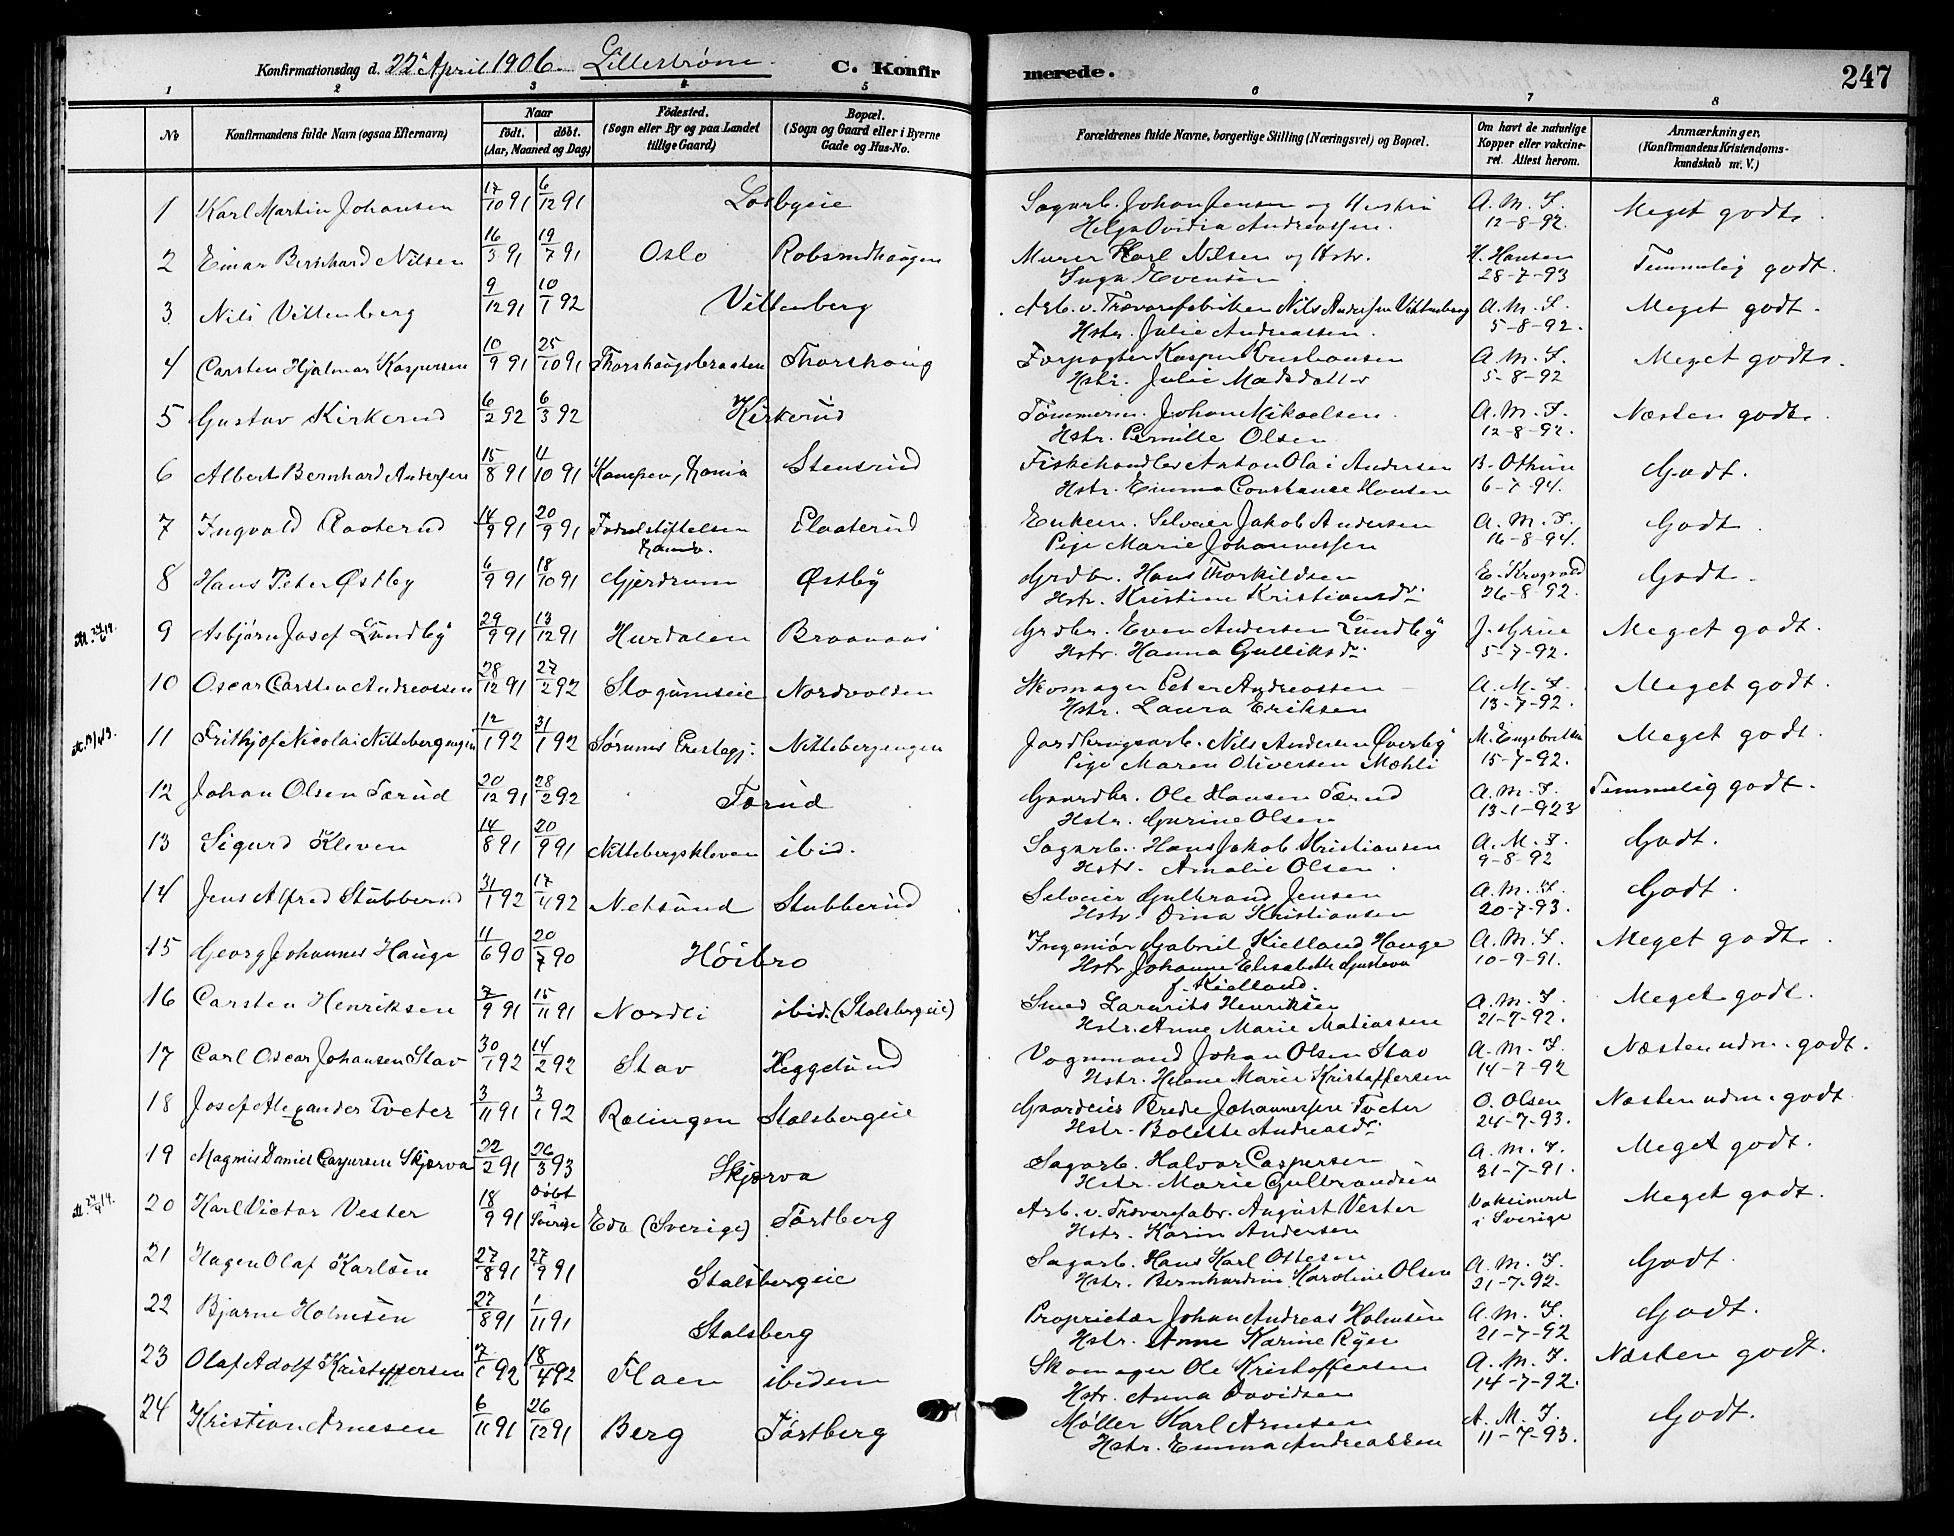 Konfirmationsdag d. 22de April 1906. Lillestrøm. C. Konfirmerede. 247
1 2 3 4 5 6 7 8
No Konfirmandens fulde Navn (ogsaa Efternavn) Naar født. døbt. (Aar, Maaned og Dag) Fødested. (Sogn eller By og paa Landet tillige Gaard) Bopæl. (Sogn og Gaard eller i Byerne Gade og Hus-No. Forældrenes fulde Navne, borgerlige Stilling (Næringsvei) og Bopæl. Om havt de naturlige Kopper eller vakcineret. Attest herom. Anmærkninger. (Konfirmandens Kristendomskundskab m. V.)
1 Karl Martin Johansen 17/10 91 6/12 91 Losbyeie Sagarb. Johan Jensen og Hustru A. M. F. Meget godt.
Helga Ovidia Andreassen. 12-8-92.
2 Einar Bernhard Nilsen 16/3 91 19/7 91 Oslo Robsrudhaugen Murer Karl Nilsen og Hstr. H. Hansen Temmelig godt.
Inga Evensen 28-7-93
3 Nils Vittenberg 9/12 91 10/1 92 Vittenberg Arb. v. Trævarefabriken Nils Andersen Vittenberg A. M. F. Meget godt.
Hstr. Julie Andreassen. 5-8-92.
4 Carsten Hjalmar Kaspersen 10/9 91 25/10 91 Thorshaugsbraaten Thorshaug Forpagter Kasper Kristiansen A. M. F. Meget godt.
Hstr. Julie Madsdatter 5-8-92
5 Gustav Kirkerud 6/2 92 6/3 92 Kirkerud Tømmerm. Johan Mikaelsen. A. M. F. Næsten godt.
Hstr. Pernille Olsen 12-8-92.
6 Albert Bernhard Andersen 15/8 91 4/10 91 Kampen, Kania Stensrud Fiskehandler Anton Olai Andersen B. Othun Godt.
Hstr. Emma Constance Hansen 6-7-94.
7 Ingvald Raaterud 14/9 91 20/9 91 Fødselstiftelsen Plaaterud Enkem. Selveier Jakob Andersen A. M. F. Godt
Pige Marie Johannessen 16-8-94.
8 Hans Peter Østby 6/9 91 18/10 91 Gjerdrum Østby Grdbr. Hans Thorkildsen E. Krogvold Godt.
Hstr. Kristine Kristiansdr. 26-8-92.
9 Asbjørn Josef Lundby 29/9 91 13/12 91 Hurdalen Braanaas Grdbr. Even Andersen Lundby J. Grue Meget godt.
Hstr. Hanna Gulliksdr. 5-7-92.
10 Oscar Carsten Andreassen 28/12 91 27/2 92 Slogumseie Nordvolden Skomager Peter Andreassen A. M. F. Meget godt.
Hstr. Laura Eriksen 13-7-92.
11 Frithjof Nicolai Nittebergengen 12/1 92 31/1 92 Sørums Prestegj. Nittebergengen Jordbrugsarb. Nils Andersen Øverby M. Engebretsen Meget godt.
Pige Maren Oliversen Mæhli 15-7-92.
12 Johan Olsen Tærud 20/12 91 28/2 92 Tærud Gaardbr. Ole Hansen Tærud A. M. F. Temmelig godt.
Hstr. Gurine Olsen 13-1-923
13 Sigurd Kleven 14/8 91 20/9 91 Nittebergskleven ibid. Sagarb. Hans Jakob Kristiansen A. M. F. Godt.
Hstr. Amalie Olsen. 9-8-92
14 Jens Alfred Stubberud 31/1 92 17/4 92 Netsund Stubberud Selveier Gulbrand Jensen A. M. F. Godt.
Hstr. Dina Kristiansen 20-7-93.
15 Georg Johannes Hauge 11/6 90 20/7 90 Høibro Ingeniør Gabriel Kielland Hauge A. M. F. Meget godt.
Hstr. Johanne Elisabeth Gustava 10-9-91.
f. Kielland.
16 Carsten Henriksen 7/9 91 15/11 91 Nordli ibid. (Stalsbergeie) Smed Lauritz Henriksen A. M. F. Meget godt.
Hstr. Anne Marie Matiassen 21-7-92.
17 Carl Oscar Johansen Stav 30/1 92 14/2 92 Stav Heggelund Vognmand Johan Olsen Stav A. M. F. Næsten udm. godt.
Hstr. Helene Marie Kristoffersen 14-7-92
18 Josef Alexander Tveter 3/11 91 3/1 92 Rælingen Stalsbergeie Gaardeier Brede Johannessen Tveter O. Olsen Næsten udm. godt
Hstr. Bolette Andreasdr. 24-7-93.
19 Magnus Daniel Caspersen Skjærva 22/2 91 26/3 93 Skjærva Sagarb. Halvor Caspersen A. M. F. Meget godt.
Hstr. Marie Gulbrandsen 31-7-91.
20 Karl Victor Vester 18/9 91 Døbt i Sverige Eda (Sverige) Tørtberg Arb. v. Trævarefabr. August Vester Vakcineret Meget godt.
Hstr. Karin Andersen i Sverige
21 Hagen Olaf Karlsen 27/8 91 27/9 91 Stalsbergeie Sagarb. Hans Karl Ottesen A. M. F. Godt.
Hstr. Bernhardine Karoline Olsen 21-7-92.
22 Bjarne Holmsen 27/8 91 1/11 91 Stalsberg Proprietær Johan Andreas Holmsen A. M. F. Godt.
Hstr. Anne Karine Ryen 21-7-92
23 Olaf Adolf Kristoffersen 7/1 92 18/4 92 Flaen ibidem Skomager Ole Kristoffersen A. M. F. Næsten godt.
Hstr. Anna Davidsen 14-7-92.
24 Kristian Arnesen 6/11 91 26/12 91 Berg Tørtberg Møller Karl Arnesen A. M. F. Godt.
Hstr. Emma Andreassen 11-7-93.